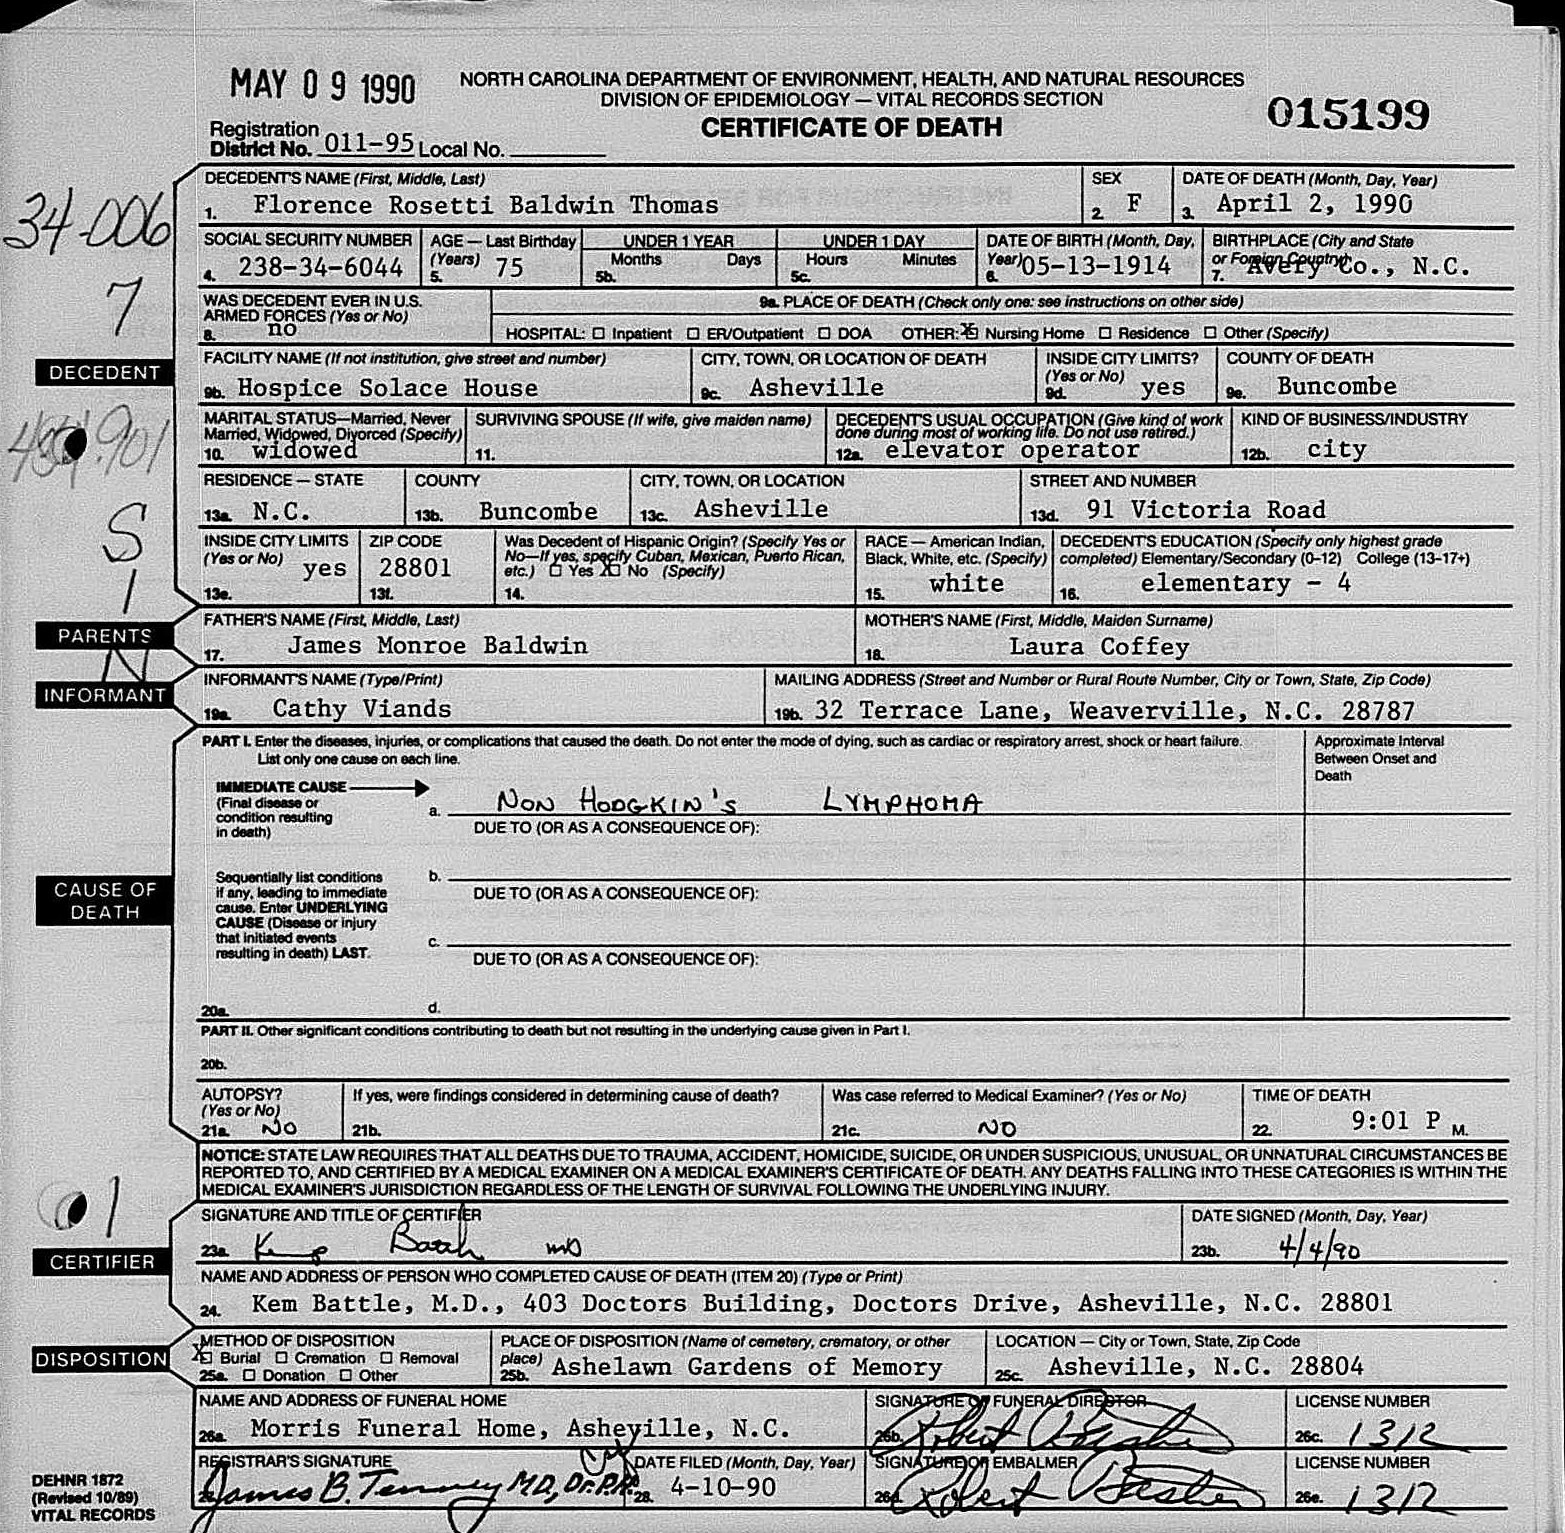 MAY 09 1990
NORTH CAROLINA DEPARTMENT OF ENVIRONMENT, HEALTH, AND NATURAL RESOURCES
DIVISION OF EPIDEMIOLOGY — VITAL RECORDS SECTION
CERTIFICATE OF DEATH
015199
Registration
District No. 011-95 Local No.
34-006
7
S
1
N
1
DECEDENT
PARENTS
INFORMANT
CAUSE OF
DEATH
CERTIFIER
DISPOSITION
DECEDENT'S NAME (First, Middle, Last)
1. Florence Rosetti Baldwin Thomas
SEX
2. F
DATE OF DEATH (Month, Day, Year)
3. April 2, 1990
SOCIAL SECURITY NUMBER
4. 238-34-6044
AGE — Last Birthday
(Years)
5. 75
UNDER 1 YEAR
Months Days
5b.
UNDER 1 DAY
Hours Minutes
5c.
DATE OF BIRTH (Month, Day,
Year)
6. 05-13-1914
BIRTHPLACE (City and State
or Foreign Country)
7. Avery Co., N.C.
WAS DECEDENT EVER IN U.S.
ARMED FORCES (Yes or No)
8. no
9a. PLACE OF DEATH (Check only one: see instructions on other side)
HOSPITAL: ☐ Inpatient ☐ ER/Outpatient ☐ DOA OTHER: ☒ Nursing Home ☐ Residence ☐ Other (Specify)
FACILITY NAME (If not institution, give street and number)
9b. Hospice Solace House
CITY, TOWN, OR LOCATION OF DEATH
9c. Asheville
INSIDE CITY LIMITS?
(Yes or No)
9d. yes
COUNTY OF DEATH
9e. Buncombe
MARITAL STATUS—Married, Never
Married, Widowed, Divorced (Specify)
10. widowed
SURVIVING SPOUSE (If wife, give maiden name)
11.
DECEDENT'S USUAL OCCUPATION (Give kind of work
done during most of working life. Do not use retired.)
12a. elevator operator
KIND OF BUSINESS/INDUSTRY
12b. city
RESIDENCE — STATE
13a. N.C.
COUNTY
13b. Buncombe
CITY, TOWN, OR LOCATION
13c. Asheville
STREET AND NUMBER
13d. 91 Victoria Road
INSIDE CITY LIMITS
(Yes or No)
yes
13e.
ZIP CODE
28801
13f.
Was Decedent of Hispanic Origin? (Specify Yes or
No—If yes, specify Cuban, Mexican, Puerto Rican,
etc.) ☐ Yes ☒ No (Specify)
14.
RACE — American Indian,
Black, White, etc. (Specify)
15. white
DECEDENT'S EDUCATION (Specify only highest grade
completed) Elementary/Secondary (0-12) College (13-17+)
16. elementary - 4
FATHER'S NAME (First, Middle, Last)
17. James Monroe Baldwin
MOTHER'S NAME (First, Middle, Maiden Surname)
18. Laura Coffey
INFORMANT'S NAME (Type/Print)
19a. Cathy Viands
MAILING ADDRESS (Street and Number or Rural Route Number, City or Town, State, Zip Code)
19b. 32 Terrace Lane, Weaverville, N.C. 28787
PART I. Enter the diseases, injuries, or complications that caused the death. Do not enter the mode of dying, such as cardiac or respiratory arrest, shock or heart failure.
List only one cause on each line.
Approximate Interval
Between Onset and
Death
IMMEDIATE CAUSE
(Final disease or
condition resulting
in death)
a. NON HODGKIN'S LYMPHOMA
DUE TO (OR AS A CONSEQUENCE OF):
Sequentially list conditions
if any, leading to immediate
cause. Enter UNDERLYING
CAUSE (Disease or injury
that initiated events
resulting in death) LAST.
b.
DUE TO (OR AS A CONSEQUENCE OF):
c.
DUE TO (OR AS A CONSEQUENCE OF):
20a.
d.
PART II. Other significant conditions contributing to death but not resulting in the underlying cause given in Part I.
20b.
AUTOPSY?
(Yes or No)
21a. NO
If yes, were findings considered in determining cause of death?
21b.
Was case referred to Medical Examiner? (Yes or No)
21c. NO
TIME OF DEATH
22. 9:01 P M.
NOTICE: STATE LAW REQUIRES THAT ALL DEATHS DUE TO TRAUMA, ACCIDENT, HOMICIDE, SUICIDE, OR UNDER SUSPICIOUS, UNUSUAL, OR UNNATURAL CIRCUMSTANCES BE
REPORTED TO, AND CERTIFIED BY A MEDICAL EXAMINER ON A MEDICAL EXAMINER'S CERTIFICATE OF DEATH. ANY DEATHS FALLING INTO THESE CATEGORIES IS WITHIN THE
MEDICAL EXAMINER'S JURISDICTION REGARDLESS OF THE LENGTH OF SURVIVAL FOLLOWING THE UNDERLYING INJURY.
SIGNATURE AND TITLE OF CERTIFIER
23a. Kemp Battle MD
DATE SIGNED (Month, Day, Year)
23b. 4/4/90
NAME AND ADDRESS OF PERSON WHO COMPLETED CAUSE OF DEATH (ITEM 20) (Type or Print)
24. Kem Battle, M.D., 403 Doctors Building, Doctors Drive, Asheville, N.C. 28801
METHOD OF DISPOSITION
☒ Burial ☐ Cremation ☐ Removal
25a. ☐ Donation ☐ Other
PLACE OF DISPOSITION (Name of cemetery, crematory, or other
place)
25b. Ashelawn Gardens of Memory
LOCATION — City or Town, State, Zip Code
25c. Asheville, N.C. 28804
NAME AND ADDRESS OF FUNERAL HOME
26a. Morris Funeral Home, Asheville, N.C.
SIGNATURE OF FUNERAL DIRECTOR
26b. Robert
LICENSE NUMBER
26c. 1312
REGISTRAR'S SIGNATURE
James B. Tenney MD, Dr.P.H.
DATE FILED (Month, Day, Year)
28. 4-10-90
SIGNATURE OF EMBALMER
26d. Robert
LICENSE NUMBER
26e. 1312
DEHNR 1872
(Revised 10/89)
VITAL RECORDS